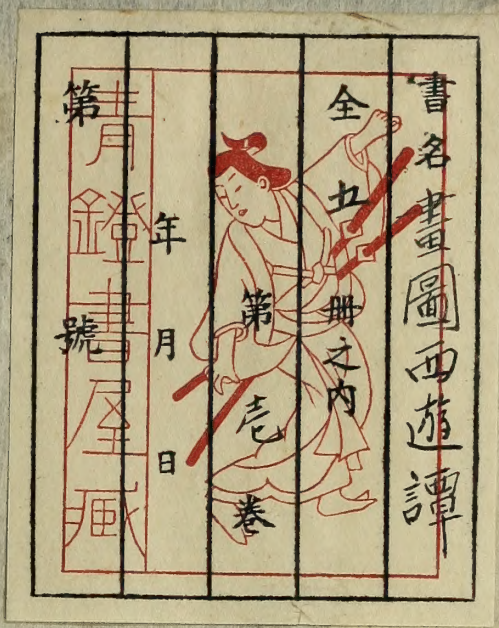 書名畫圖西遊譚
全五冊之内
第壱巻
年月日
第號
青鐙書屋臧